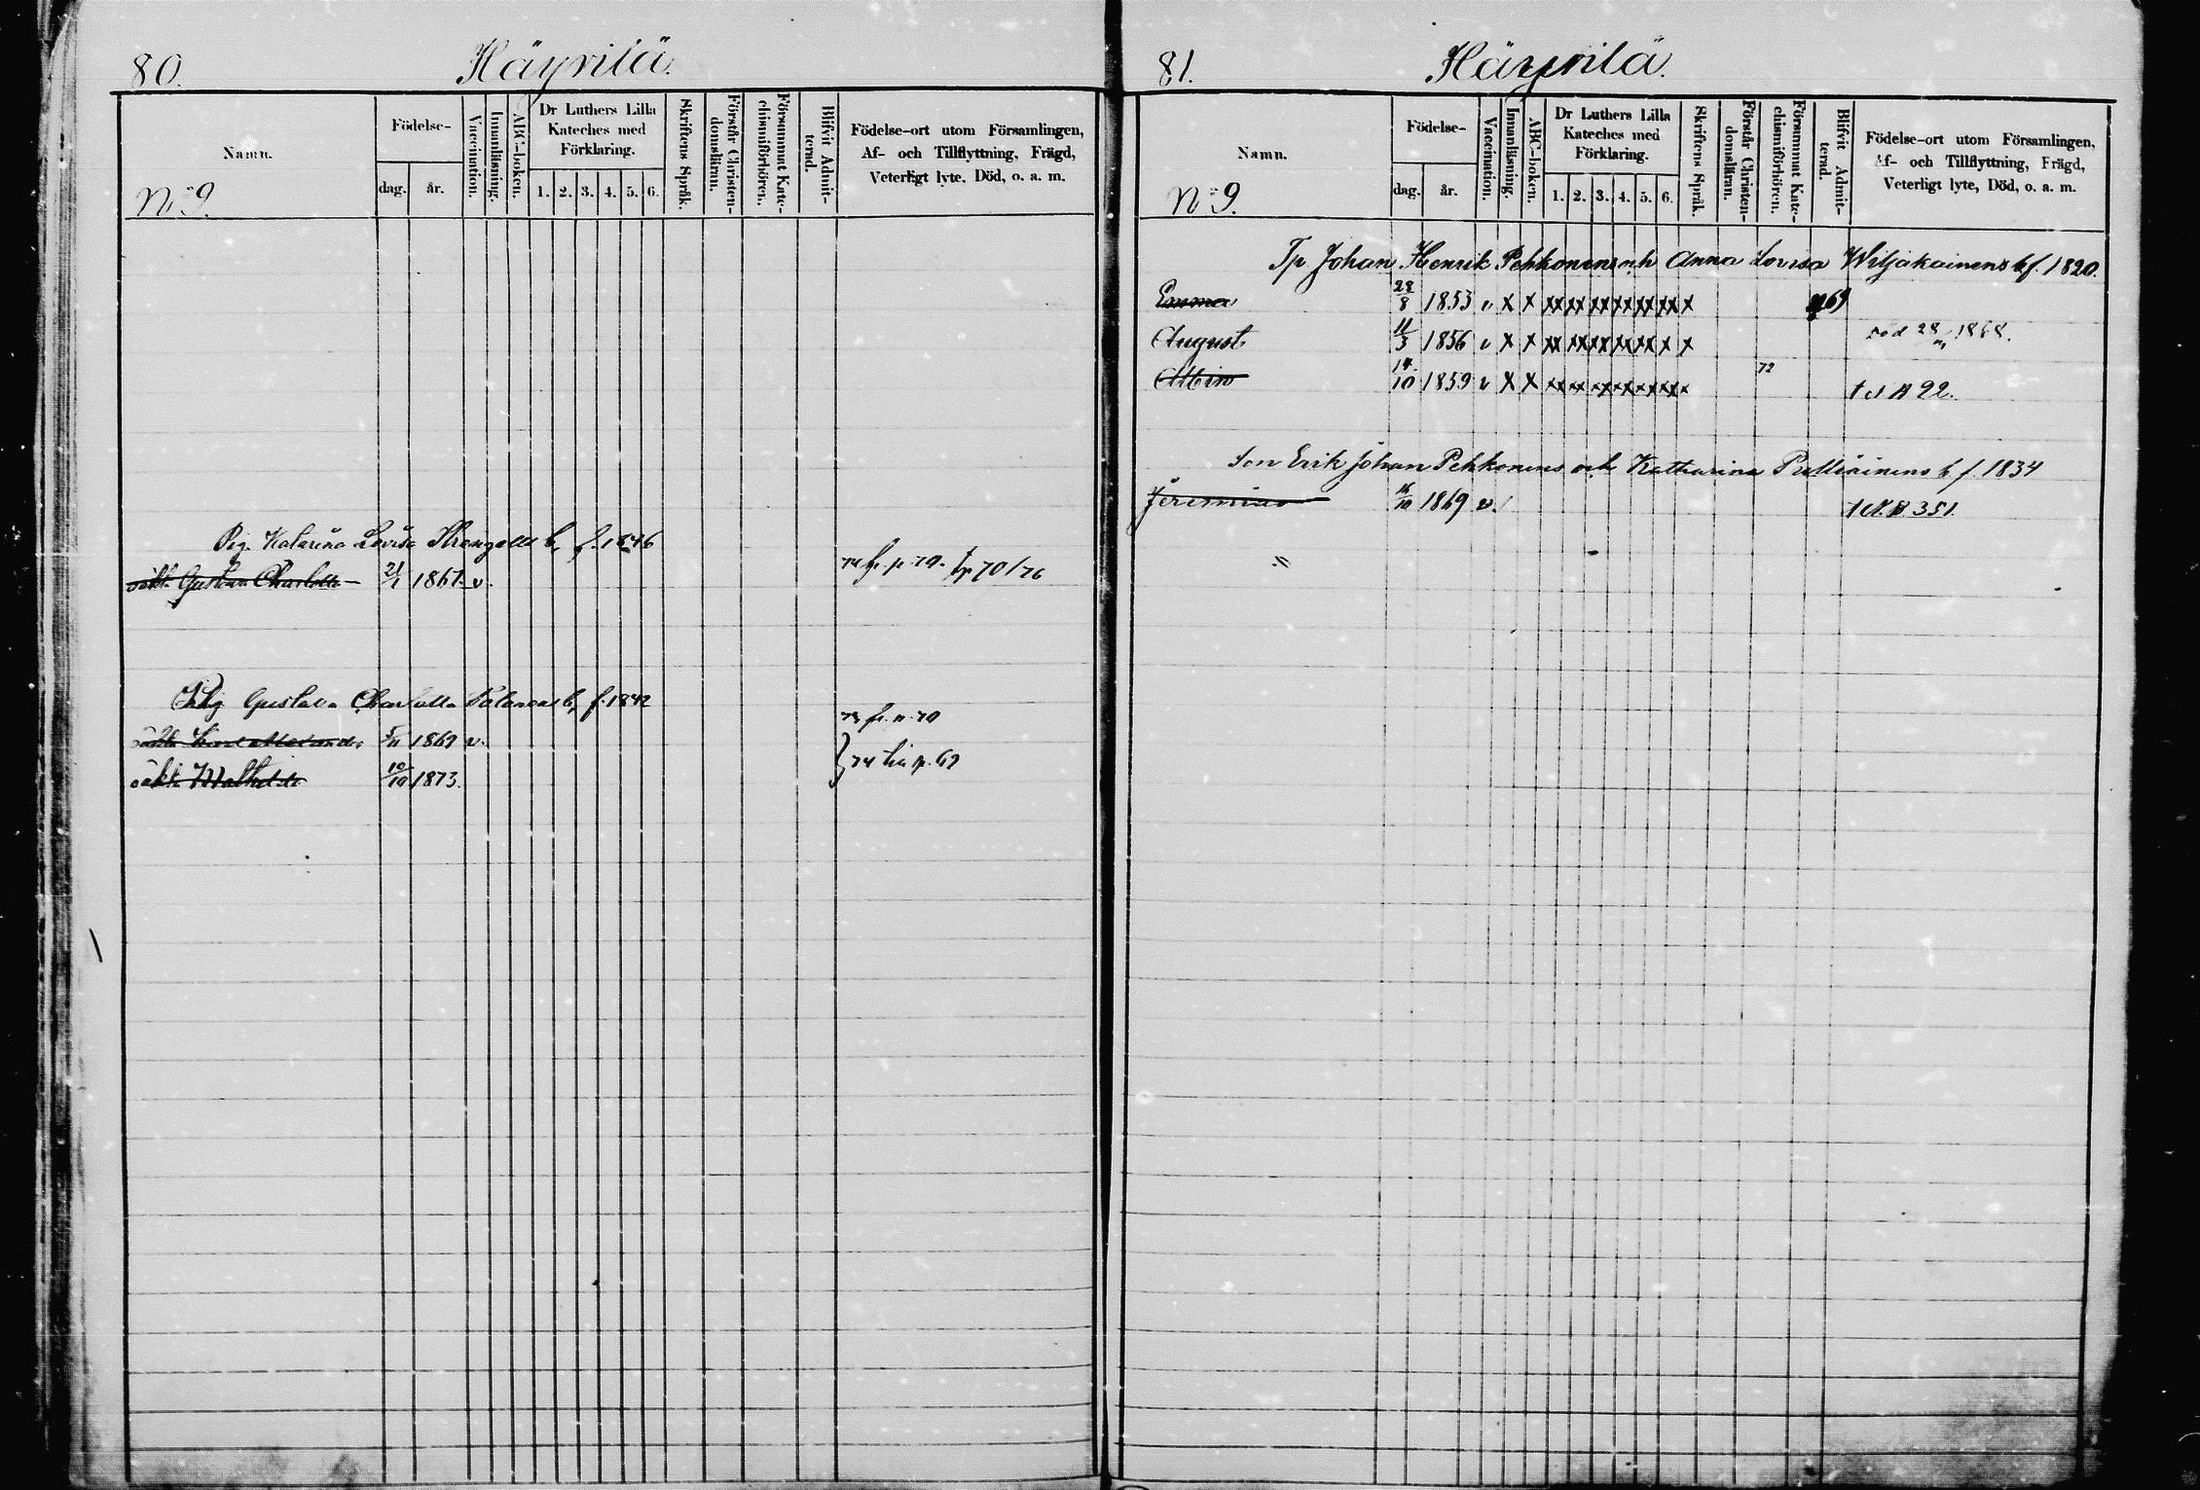 80.
Häyrilä.
Namn.
No 9.
Födelse-
dag.
år.
Vaccination.
Innanläsning.
ABC-boken.
Dr Luthers Lilla
Kateches med
Förklaring.
1. 2. 3. 4. 5. 6.
Skriftens Språk.
Förstår Christen-
domsläran.
Försummat Kate-
chismiförhören.
Blifvit Admit-
terad.
Födelse-ort utom Församlingen,
Af- och Tillflyttning, Frägd,
Veterligt lyte, Död, o. a. m.
Pig. Katarina Lovisa b. f. 1846
oäkt. Gustava Charlotta 21/1 1867. v. 74 fr. p. 70. tp 70/76
Pig Gustava Charlotta b. f. 1842
73 fr. p. 70
oäkt. 1869 v.
74 till p. 69
oäkt. Mathilda 10/10 1873.
81.
Häyrilä.
Namn.
No 9.
Födelse-
dag.
år.
Vaccination.
Innanläsning.
ABC-boken.
Dr Luthers Lilla
Kateches med
Förklaring.
1. 2. 3. 4. 5. 6.
Skriftens Språk.
Förstår Christen-
domsläran.
Försummat Kate-
chismiförhören.
Blifvit Admit-
terad.
Födelse-ort utom Församlingen,
Af- och Tillflyttning, Frägd,
Veterligt lyte, Död, o. a. m.
Tp Johan Henrik Pekkonens och Anna Lovisa Wiljakainens b f. 1820.
Emma 28/8 1853 v x x xx xx xx xx xx xx x 69
August 11/3 1856 v x x xx xx xx xx xx x x död 28 1868.
Albin 14/10 1859 v x x xx xx xx xx xx xx x 72 t d B 92.
Son Erik Johan Pekkonens och Katharina b f. 1834
Jeremias 16/10 1869 v. 351.